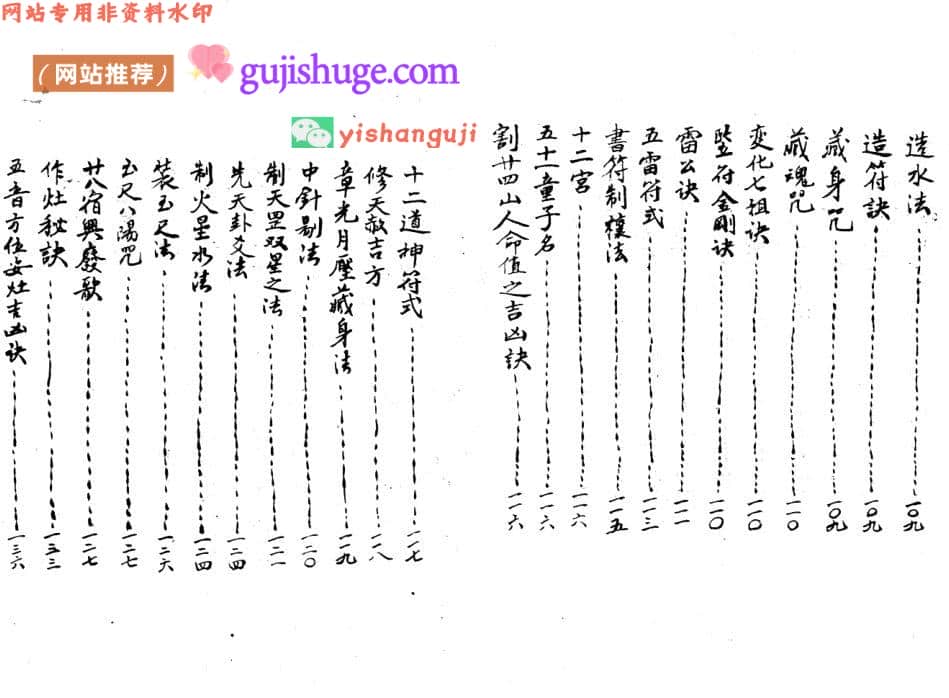 网站专用非资料水印
（网站推荐） gujishuge.com
yishanguji
造水法 一〇九
造符訣 一〇九
藏身咒 一〇九
藏魂咒 一一〇
变化七祖诀 一一〇
竖符金剛訣 一一〇
雷公诀 一一一
五雷符式 一一三
書符制禳法 一一五
十二宫 一一六
五十一童子名 一一六
割廿四山人命值之吉凶訣 一一六
十二道神符式 一一七
修天赦吉方 一一八
章光月壓藏身法 一一九
中針剔法 一二〇
制天罡双星之法 一二一
先天卦爻法 一二四
制火星水法 一二四
装玉尺法 一二六
玉尺八陽咒 一二七
廿八宿興廢歌 一二七
作灶秘訣 一三三
五音方位安灶吉凶诀 一三六